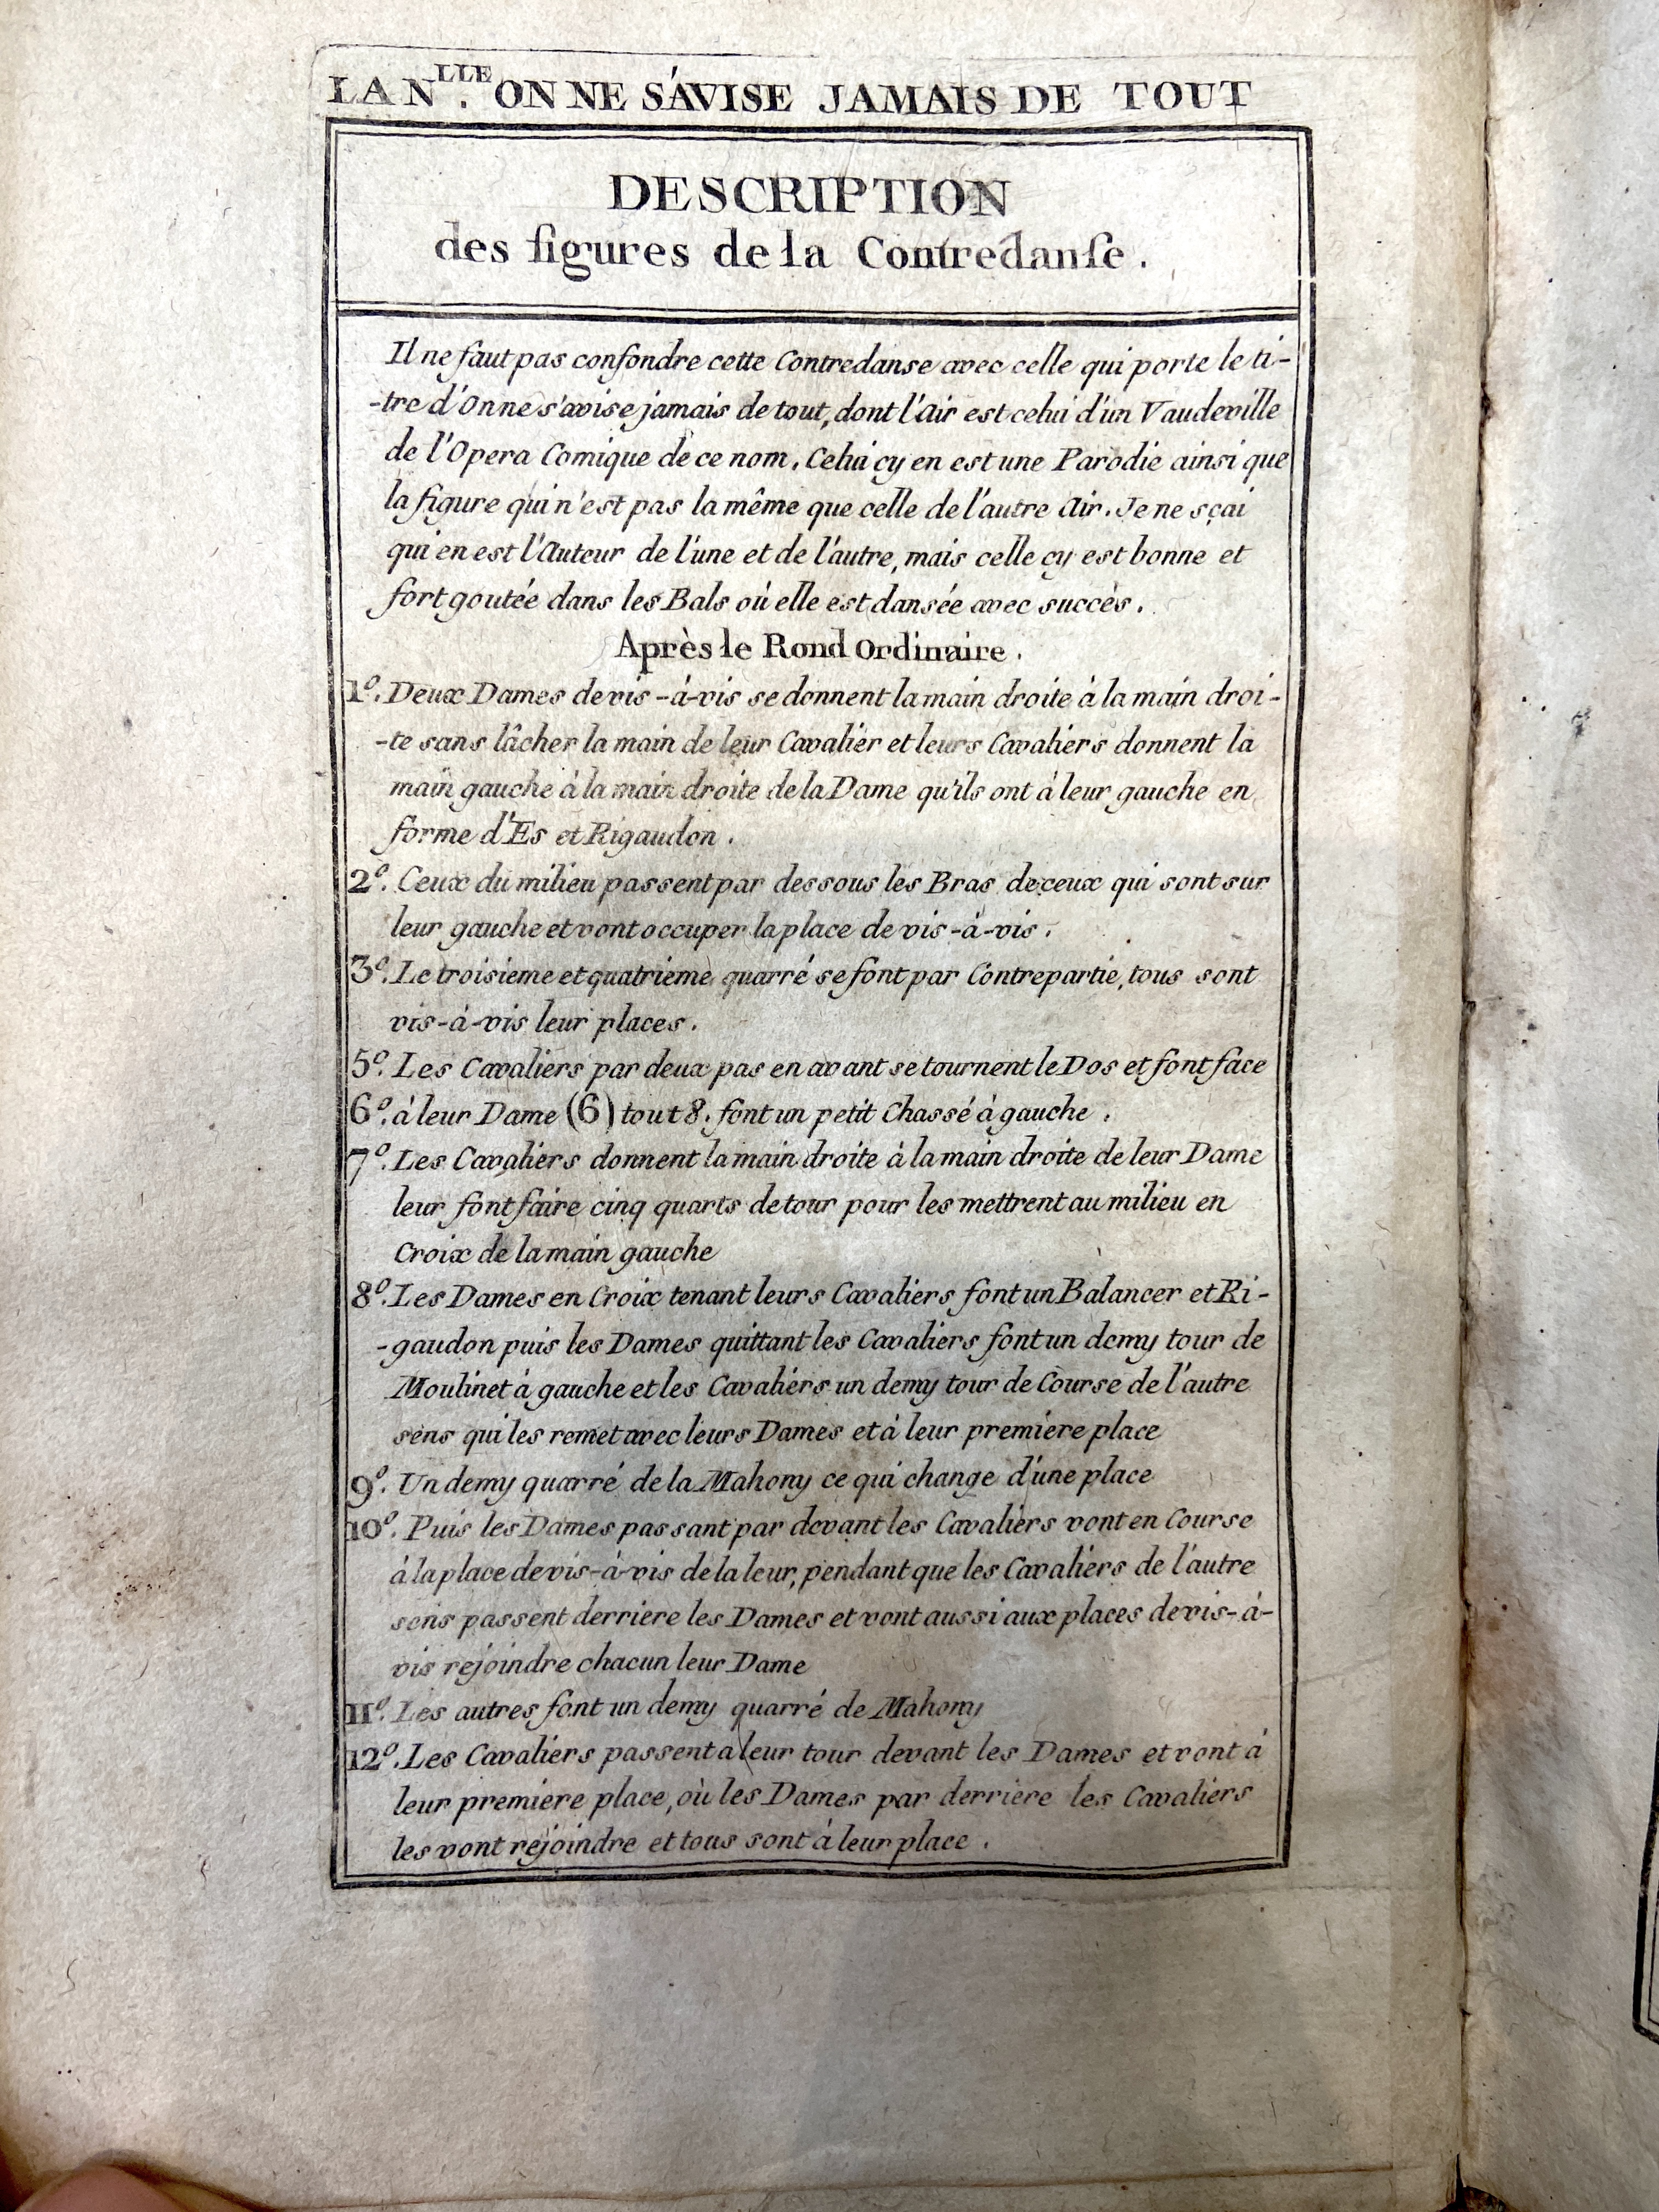 LA N.LLE ON NE S'AVISE JAMAIS DE TOUT
DESCRIPTION
des figures de la Contredanſe.
Il ne faut pas confondre cette Contredanse avec celle qui porte le ti-
-tre d'On ne s'avise jamais de tout, dont l'Air est celui d'un Vaudeville
de l'Opera Comique de ce nom, Celui cy en est une Parodie ainsi que
la figure qui n'est pas la même que celle de l'autre Air. Je ne sçai
qui en est l'Auteur de l'une et de l'autre, mais celle cy est bonne et
fort goutée dans les Bals où elle est dansée avec succès.
Après le Rond Ordinaire.
1º. Deux Dames de vis-à-vis se donnent la main droite à la main droi-
-te sans lâcher la main de leur Cavalier et leurs Cavaliers donnent la
main gauche à la main droite de la Dame qu'ils ont à leur gauche en
forme d'Es et Rigaudon.
2º. Ceux du milieu passent par dessous les Bras de ceux qui sont sur
leur gauche et vont occuper la place de vis-à-vis.
3º. Le troisieme et quatrieme quarré se font par Contrepartie, tous sont
vis-à-vis leur places.
5º. Les Cavaliers par deux pas en avant se tournent le Dos et font face
6º. à leur Dame (6) tout 8. font un petit Chassé à gauche.
7º. Les Cavaliers donnent la main droite à la main droite de leur Dame
leur font faire cinq quarts de tour pour les mettrent au milieu en
Croix de la main gauche
8º. Les Dames en Croix tenant leurs Cavaliers font un Balancer et Ri-
-gaudon puis les Dames quittant les Cavaliers font un demy tour de
Moulinet à gauche et les Cavaliers un demy tour de Course de l'autre
sens qui les remet avec leurs Dames et à leur premiere place
9º. Un demy quarré de la Mahony ce qui change d'une place
10º. Puis les Dames passant par devant les Cavaliers vont en Course
à la place de vis-à-vis de la leur, pendant que les Cavaliers de l'autre
sens passent derriere les Dames et vont aussi aux places de vis-à-
vis rejoindre chacun leur Dame
11º. Les autres font un demy quarré de Mahony
12º. Les Cavaliers passent a leur tour devant les Dames et vont à
leur premiere place, où les Dames par derriere les Cavaliers
les vont rejoindre et tous sont à leur place.